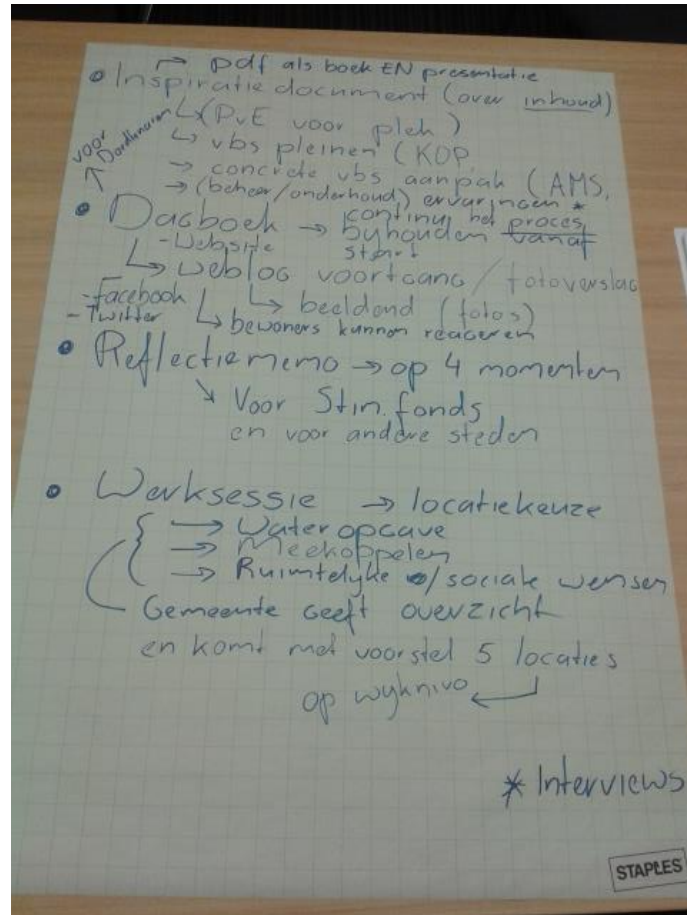 → pdf als boek EN presentatie
• Inspiratiedocument (over inhoud)
↳ (PvE voor plek)
↳ vbs pleinen (KOP
→ concrete vbs aanpak (AMS,
→ (beheer/onderhoud) ervaringen *
voor
• Dagboek → continu het proces
byhouden vanaf
start
- Website
↳ weblog voortgang / fotoverslag
- facebook
- Twitter
↳ beeldend (fotos)
↳ bewoners kunnen reageren
• Reflectiememo → op 4 momenten
↘ Voor Stim.fonds
en voor andere steden
• Werksessie → locatiekeuze
→ Wateropgave
→ Meekoppelen
→ Ruimtelyke / sociale wensen
Gemeente geeft overzicht
en komt met voorstel 5 locaties
op wyknivo
* Interviews
STAPLES